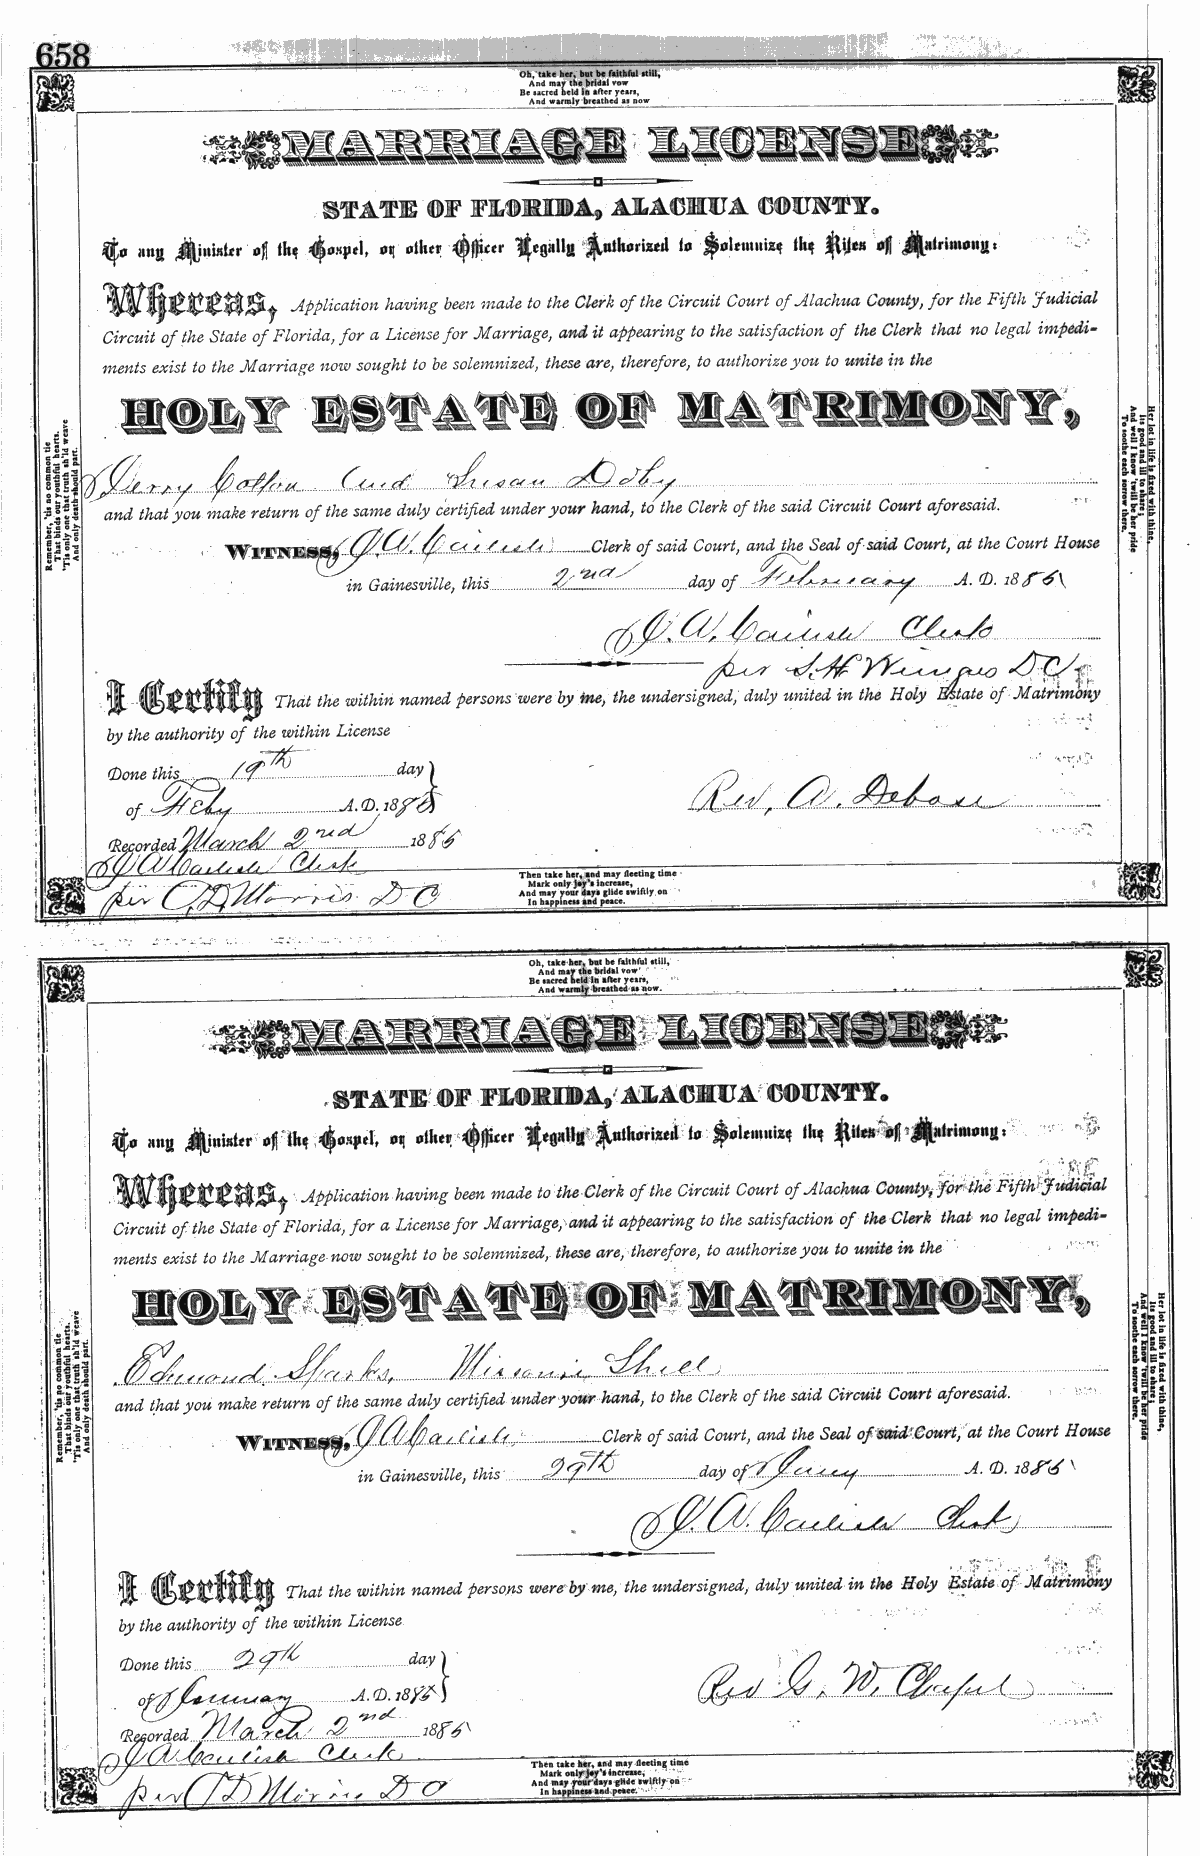 658
Oh, take her, but be faithful still,
And may the bridal vow
Be sacred held in after years,
And warmly breathed as now
MARRIAGE LICENSE
STATE OF FLORIDA, ALACHUA COUNTY.
To any Minister of the Gospel, or other Officer Legally Authorized to Solemnize the Rites of Matrimony:
Whereas, Application having been made to the Clerk of the Circuit Court of Alachua County, for the Fifth Judicial
Circuit of the State of Florida, for a License for Marriage, and it appearing to the satisfaction of the Clerk that no legal impedi-
ments exist to the Marriage now sought to be solemnized, these are, therefore, to authorize you to unite in the
HOLY ESTATE OF MATRIMONY,
Remember, 'tis no common tie
That binds our youthful hearts.
'Tis only one that truth sh'ld weave
And only death should part.
Her lot in life is fixed with thine,
its good and ill to share;
And well I know 'twill be her pride
To soothe each sorrow there.
Jerry Colton and Susan Doby
and that you make return of the same duly certified under your hand, to the Clerk of the said Circuit Court aforesaid.
WITNESS, J. A. Carlisle Clerk of said Court, and the Seal of said Court, at the Court House
in Gainesville, this 2nd day of February A. D. 1885
J. A. Carlisle Clerk
per S. H. Wienges D C
I Certify That the within named persons were by me, the undersigned, duly united in the Holy Estate of Matrimony
by the authority of the within License
Done this 19th day
of Feby A. D. 1885
Rev. A. Debose
Recorded March 2nd 1885
J A Carlisle Clerk
per C. D. Morris D C
Then take her, and may fleeting time
Mark only joy's increase,
And may your days glide swiftly on
In happiness and peace.
Oh, take her, but be faithful still,
And may the bridal vow
Be sacred held in after years,
And warmly breathed as now.
MARRIAGE LICENSE
STATE OF FLORIDA, ALACHUA COUNTY.
To any Minister of the Gospel, or other Officer Legally Authorized to Solemnize the Rites of Matrimony:
Whereas, Application having been made to the Clerk of the Circuit Court of Alachua County, for the Fifth Judicial
Circuit of the State of Florida, for a License for Marriage, and it appearing to the satisfaction of the Clerk that no legal impedi-
ments exist to the Marriage now sought to be solemnized, these are, therefore, to authorize you to unite in the
HOLY ESTATE OF MATRIMONY,
Remember, 'tis no common tie
That binds our youthful hearts.
'Tis only one that truth sh'ld weave
And only death should part.
Her lot in life is fixed with thine,
its good and ill to share;
And well I know 'twill be her pride
To soothe each sorrow there.
Edmond Sparks, Missouri Shell
and that you make return of the same duly certified under your hand, to the Clerk of the said Circuit Court aforesaid.
WITNESS, J A Carlisle Clerk of said Court, and the Seal of said Court, at the Court House
in Gainesville, this 29th day of Jany A. D. 1885
J. A. Carlisle Clerk
I Certify That the within named persons were by me, the undersigned, duly united in the Holy Estate of Matrimony
by the authority of the within License
Done this 29th day
of January A. D. 1885
Rev G. W. Chapel
Recorded March 2nd 1885
J A Carlisle Clerk
per C D Morris D C
Then take her, and may fleeting time
Mark only joy's increase,
And may your days glide swiftly on
In happiness and peace.